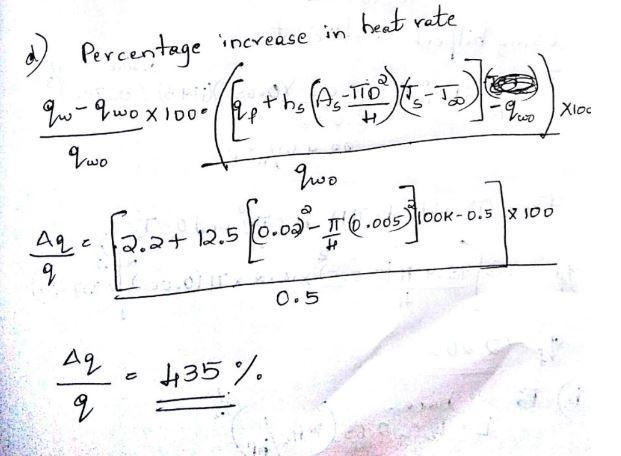 d) Percentage increase in heat rate
(q_w - q_wo)/q_wo × 100 = ([q_p + h_s (A_s - πD²/4)(T_s - T_∞)] - q_wo)/q_wo × 100
Δq/q = [2.2 + 12.5 [(0.02)² - π/4 (0.005)²] 100K - 0.5]/0.5 × 100
Δq/q = 435 %.